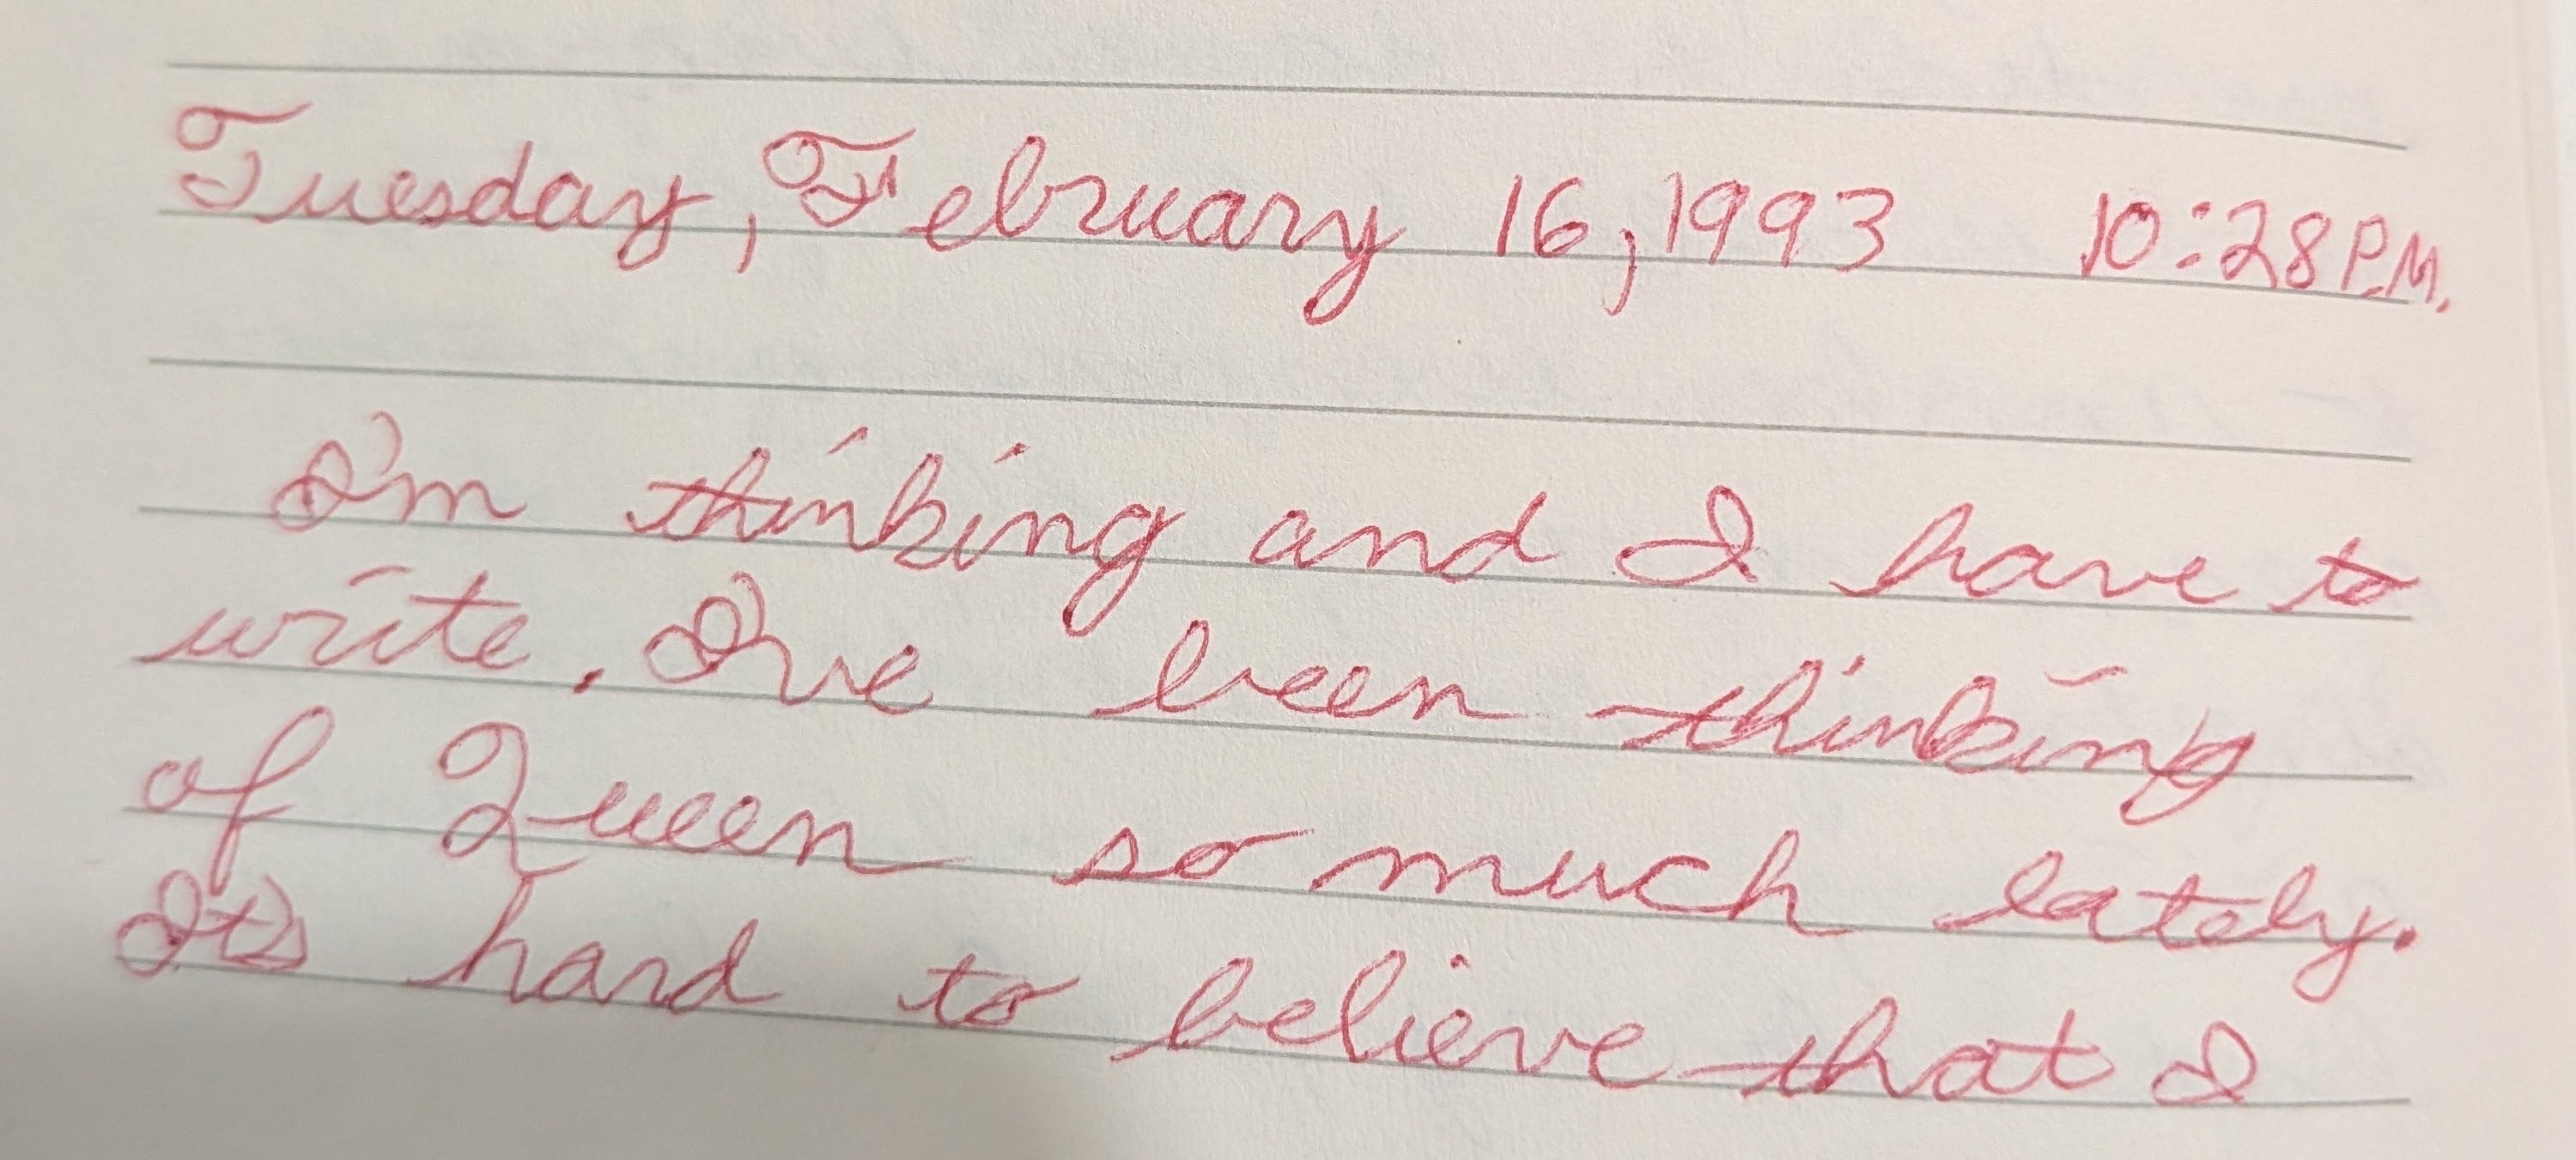 Tuesday, February 16, 1993 10:28 P.M.
I'm thinking and I have to
write. I've been thinking
of Queen so much lately.
It's hard to believe that I